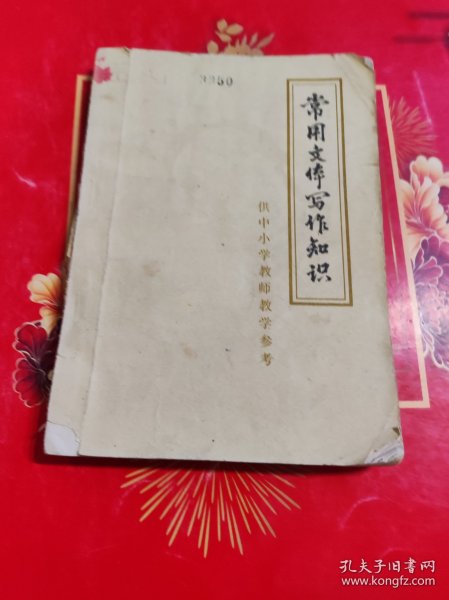 3250
常用文体写作知识
供中小学教师教学参考
孔夫子旧书网
www.kongfz.com